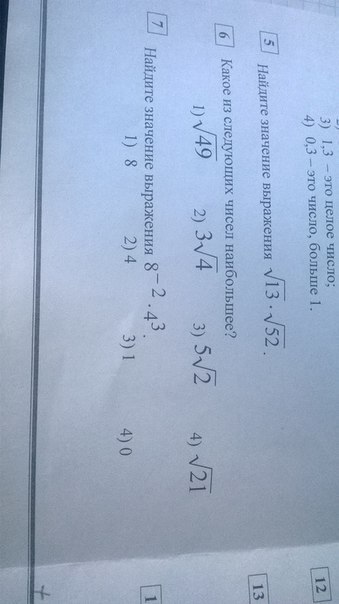 3) 1,3 – это целое число;
4) 0,3 – это число, больше 1.
5 Найдите значение выражения √13 · √52.
6 Какое из следующих чисел наибольшее?
1) √49 2) 3√4 3) 5√2 4) √21
7 Найдите значение выражения 8⁻² · 4³.
1) 8 2) 4 3) 1 4) 0
12
13
1